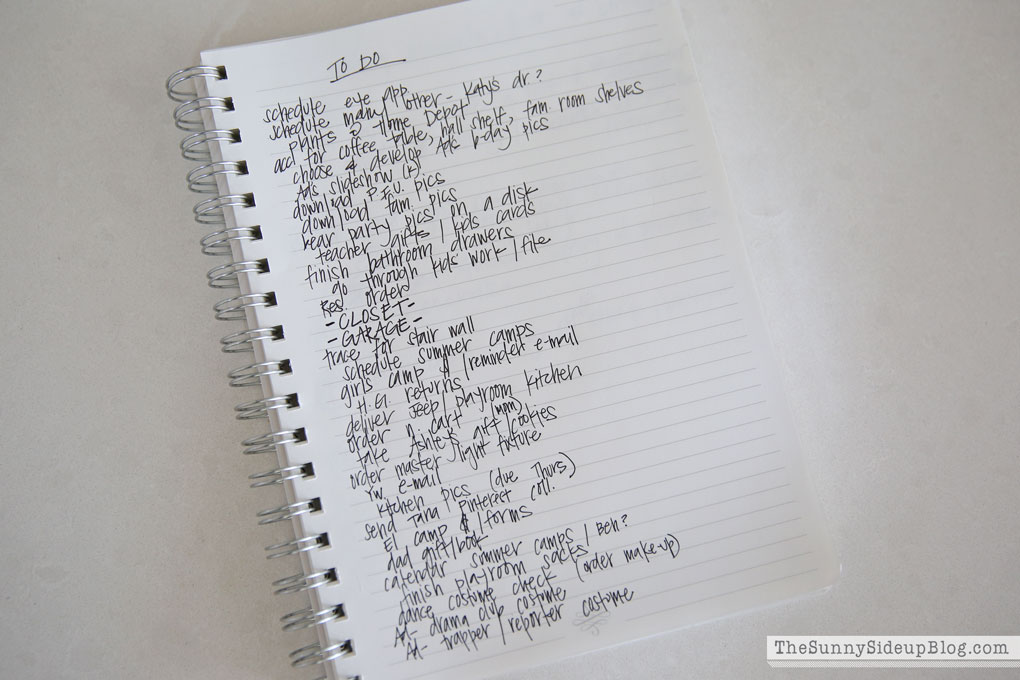 TO DO
schedule eye app
schedule many other - Katy's dr.?
plants @ Home Depot
acc for coffee table, hall shelf, fam room shelves
choose & develop Ad's b-day pics
Ad's slideshow (K)
download P.F.U. pics
download fam. pics
bear party pics on a disk
teacher gifts / kids cards
finish bathroom drawers
go through kids work / file
Res. order
- CLOSET -
- GARAGE -
trace for stair wall
schedule summer camps
girls camp $ / reminder e-mail
H.G. returns
deliver Jeep / playroom kitchen
order n. cart (mom)
take Ashley's gift / cookies
order master light fixture
YW e-mail
kitchen pics (due Thurs)
send Tana Pinterest coll.
El camp $ / forms
dad gift/book
calendar summer camps / Beh?
finish playroom sacks
dance costume check (order make-up)
Ad- drama club costume
Ad- trapper / reporter costume
TheSunnySideupBlog.com